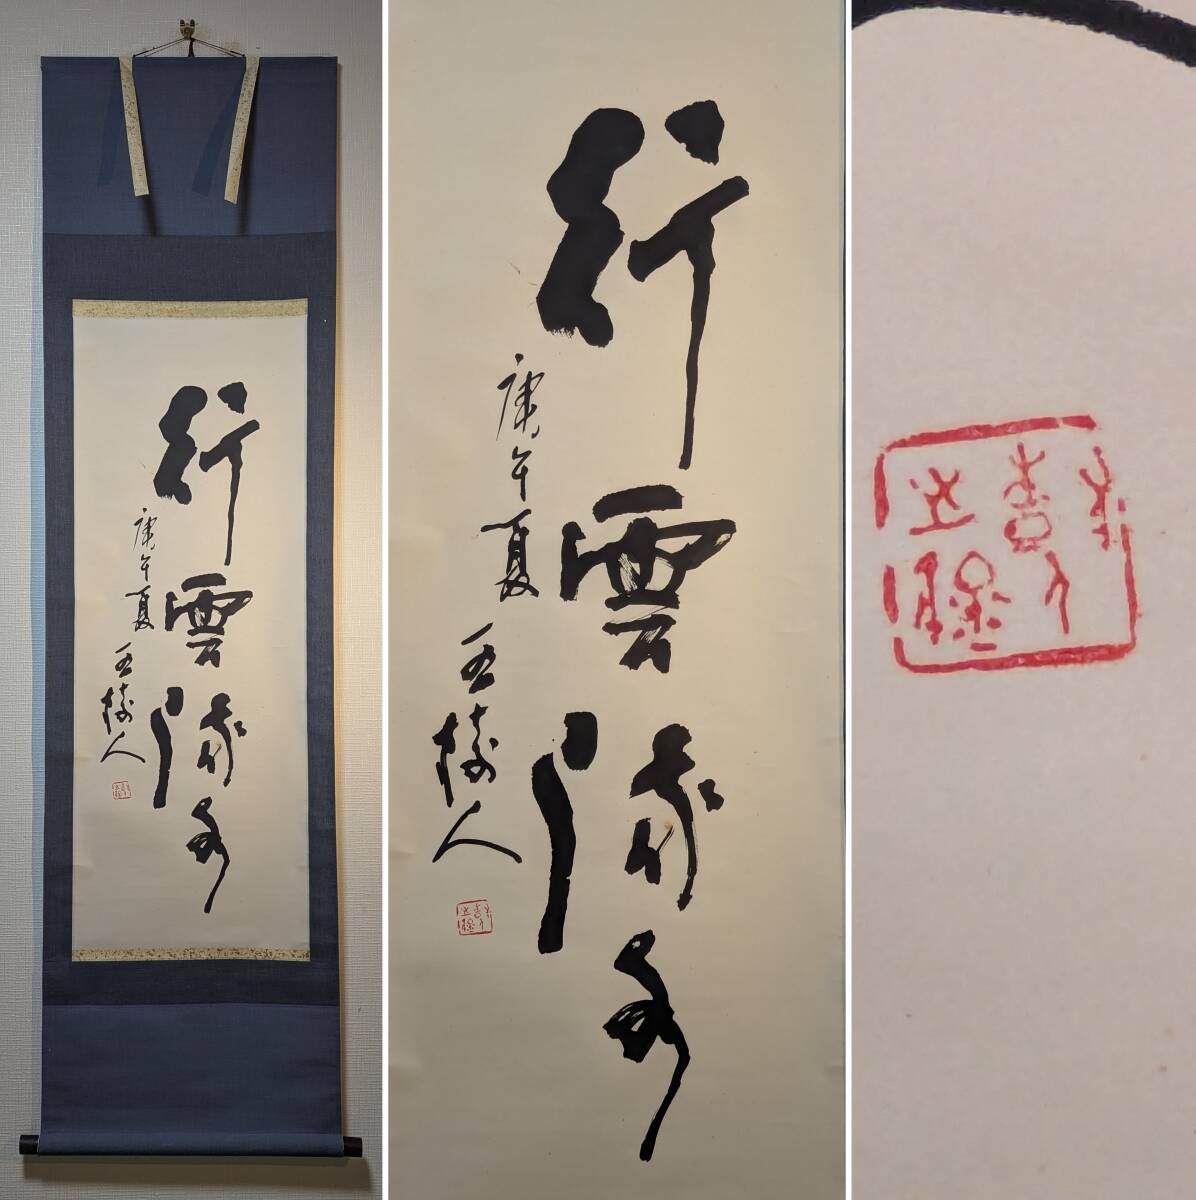 行雲流水
庚午夏
樹人
行雲流水
庚午夏
樹人